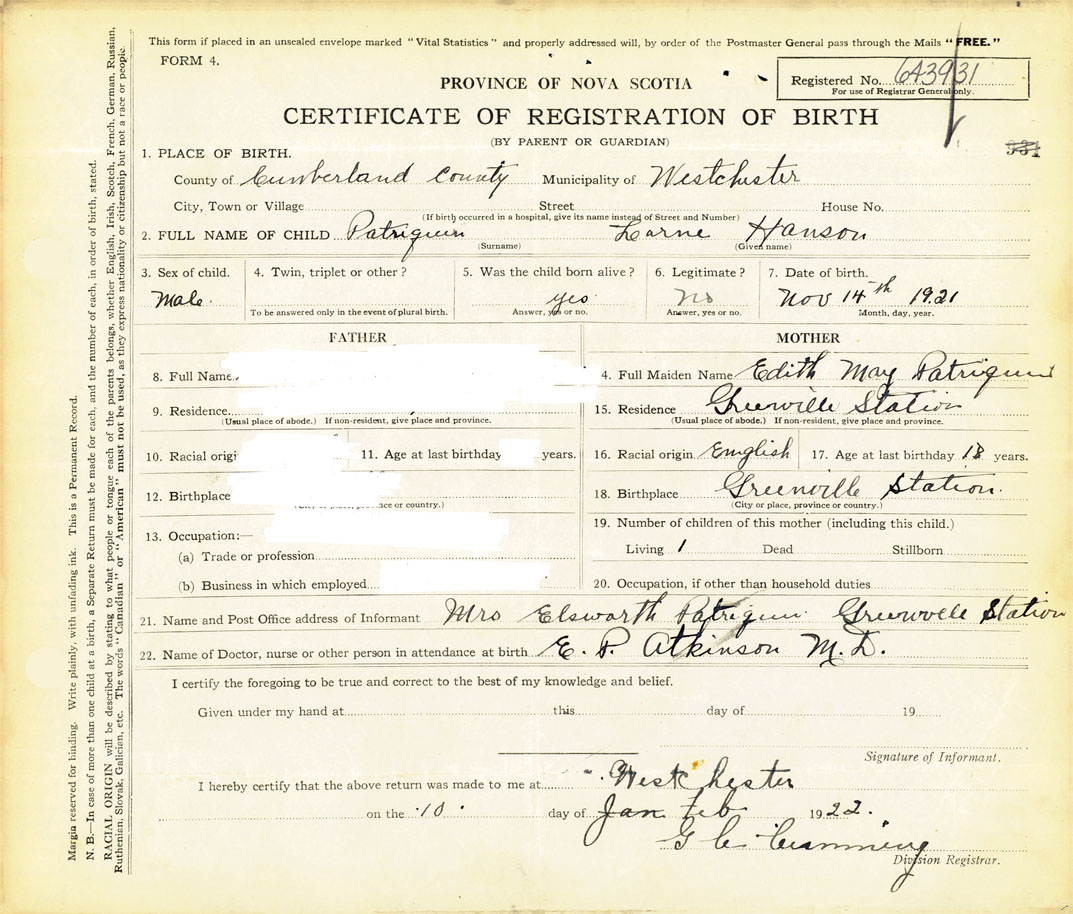 This form if placed in an unsealed envelope marked "Vital Statistics" and properly addressed will, by order of the Postmaster General pass through the Mails "FREE."
FORM 4.
Registered No. 6A3931
For use of Registrar General only.
PROVINCE OF NOVA SCOTIA
CERTIFICATE OF REGISTRATION OF BIRTH
(BY PARENT OR GUARDIAN)
931
1. PLACE OF BIRTH.
County of Cumberland County Municipality of Westchester
City, Town or Village Street House No.
(If birth occurred in a hospital, give its name instead of Street and Number)
2. FULL NAME OF CHILD Patriquin Larne Hanson
(Surname) (Given name)
3. Sex of child. 4. Twin, triplet or other? 5. Was the child born alive? 6. Legitimate? 7. Date of birth.
Male. yes No Nov 14th 1921
To be answered only in the event of plural birth. Answer, yes or no. Answer, yes or no. Month, day, year.
FATHER MOTHER
8. Full Name 4. Full Maiden Name Edith May Patriquin
9. Residence 15. Residence Greenville Station
(Usual place of abode.) If non-resident, give place and province. (Usual place of abode.) If non-resident, give place and province.
10. Racial origi 11. Age at last birthday years. 16. Racial origin English 17. Age at last birthday 18 years.
12. Birthplace 18. Birthplace Greenville Station.
(City or place, province or country.) (City or place, province or country.)
13. Occupation:— 19. Number of children of this mother (including this child.)
(a) Trade or profession Living 1 Dead Stillborn
(b) Business in which employed 20. Occupation, if other than household duties
21. Name and Post Office address of Informant Mrs Elsworth Patriquin Greenville Station
22. Name of Doctor, nurse or other person in attendance at birth E. P. Atkinson M.D.
I certify the foregoing to be true and correct to the best of my knowledge and belief.
Given under my hand at this day of 19
Signature of Informant.
I hereby certify that the above return was made to me at Westchester
on the 10 day of Jan Feb 1922.
G C Cumming
Division Registrar.
Margin reserved for binding. Write plainly, with unfading ink. This is a Permanent Record.
N. B.—In case of more than one child at a birth, a Separate Return must be made for each, and the number of each, in order of birth, stated.
RACIAL ORIGIN will be described by stating to what people or tongue each of the parents belongs, whether English, Irish, Scotch, French, German, Russian,
Ruthenian, Slovak, Galician, etc. The words "Canadian" or "American" must not be used, as they express nationality or citizenship but not a race or people.